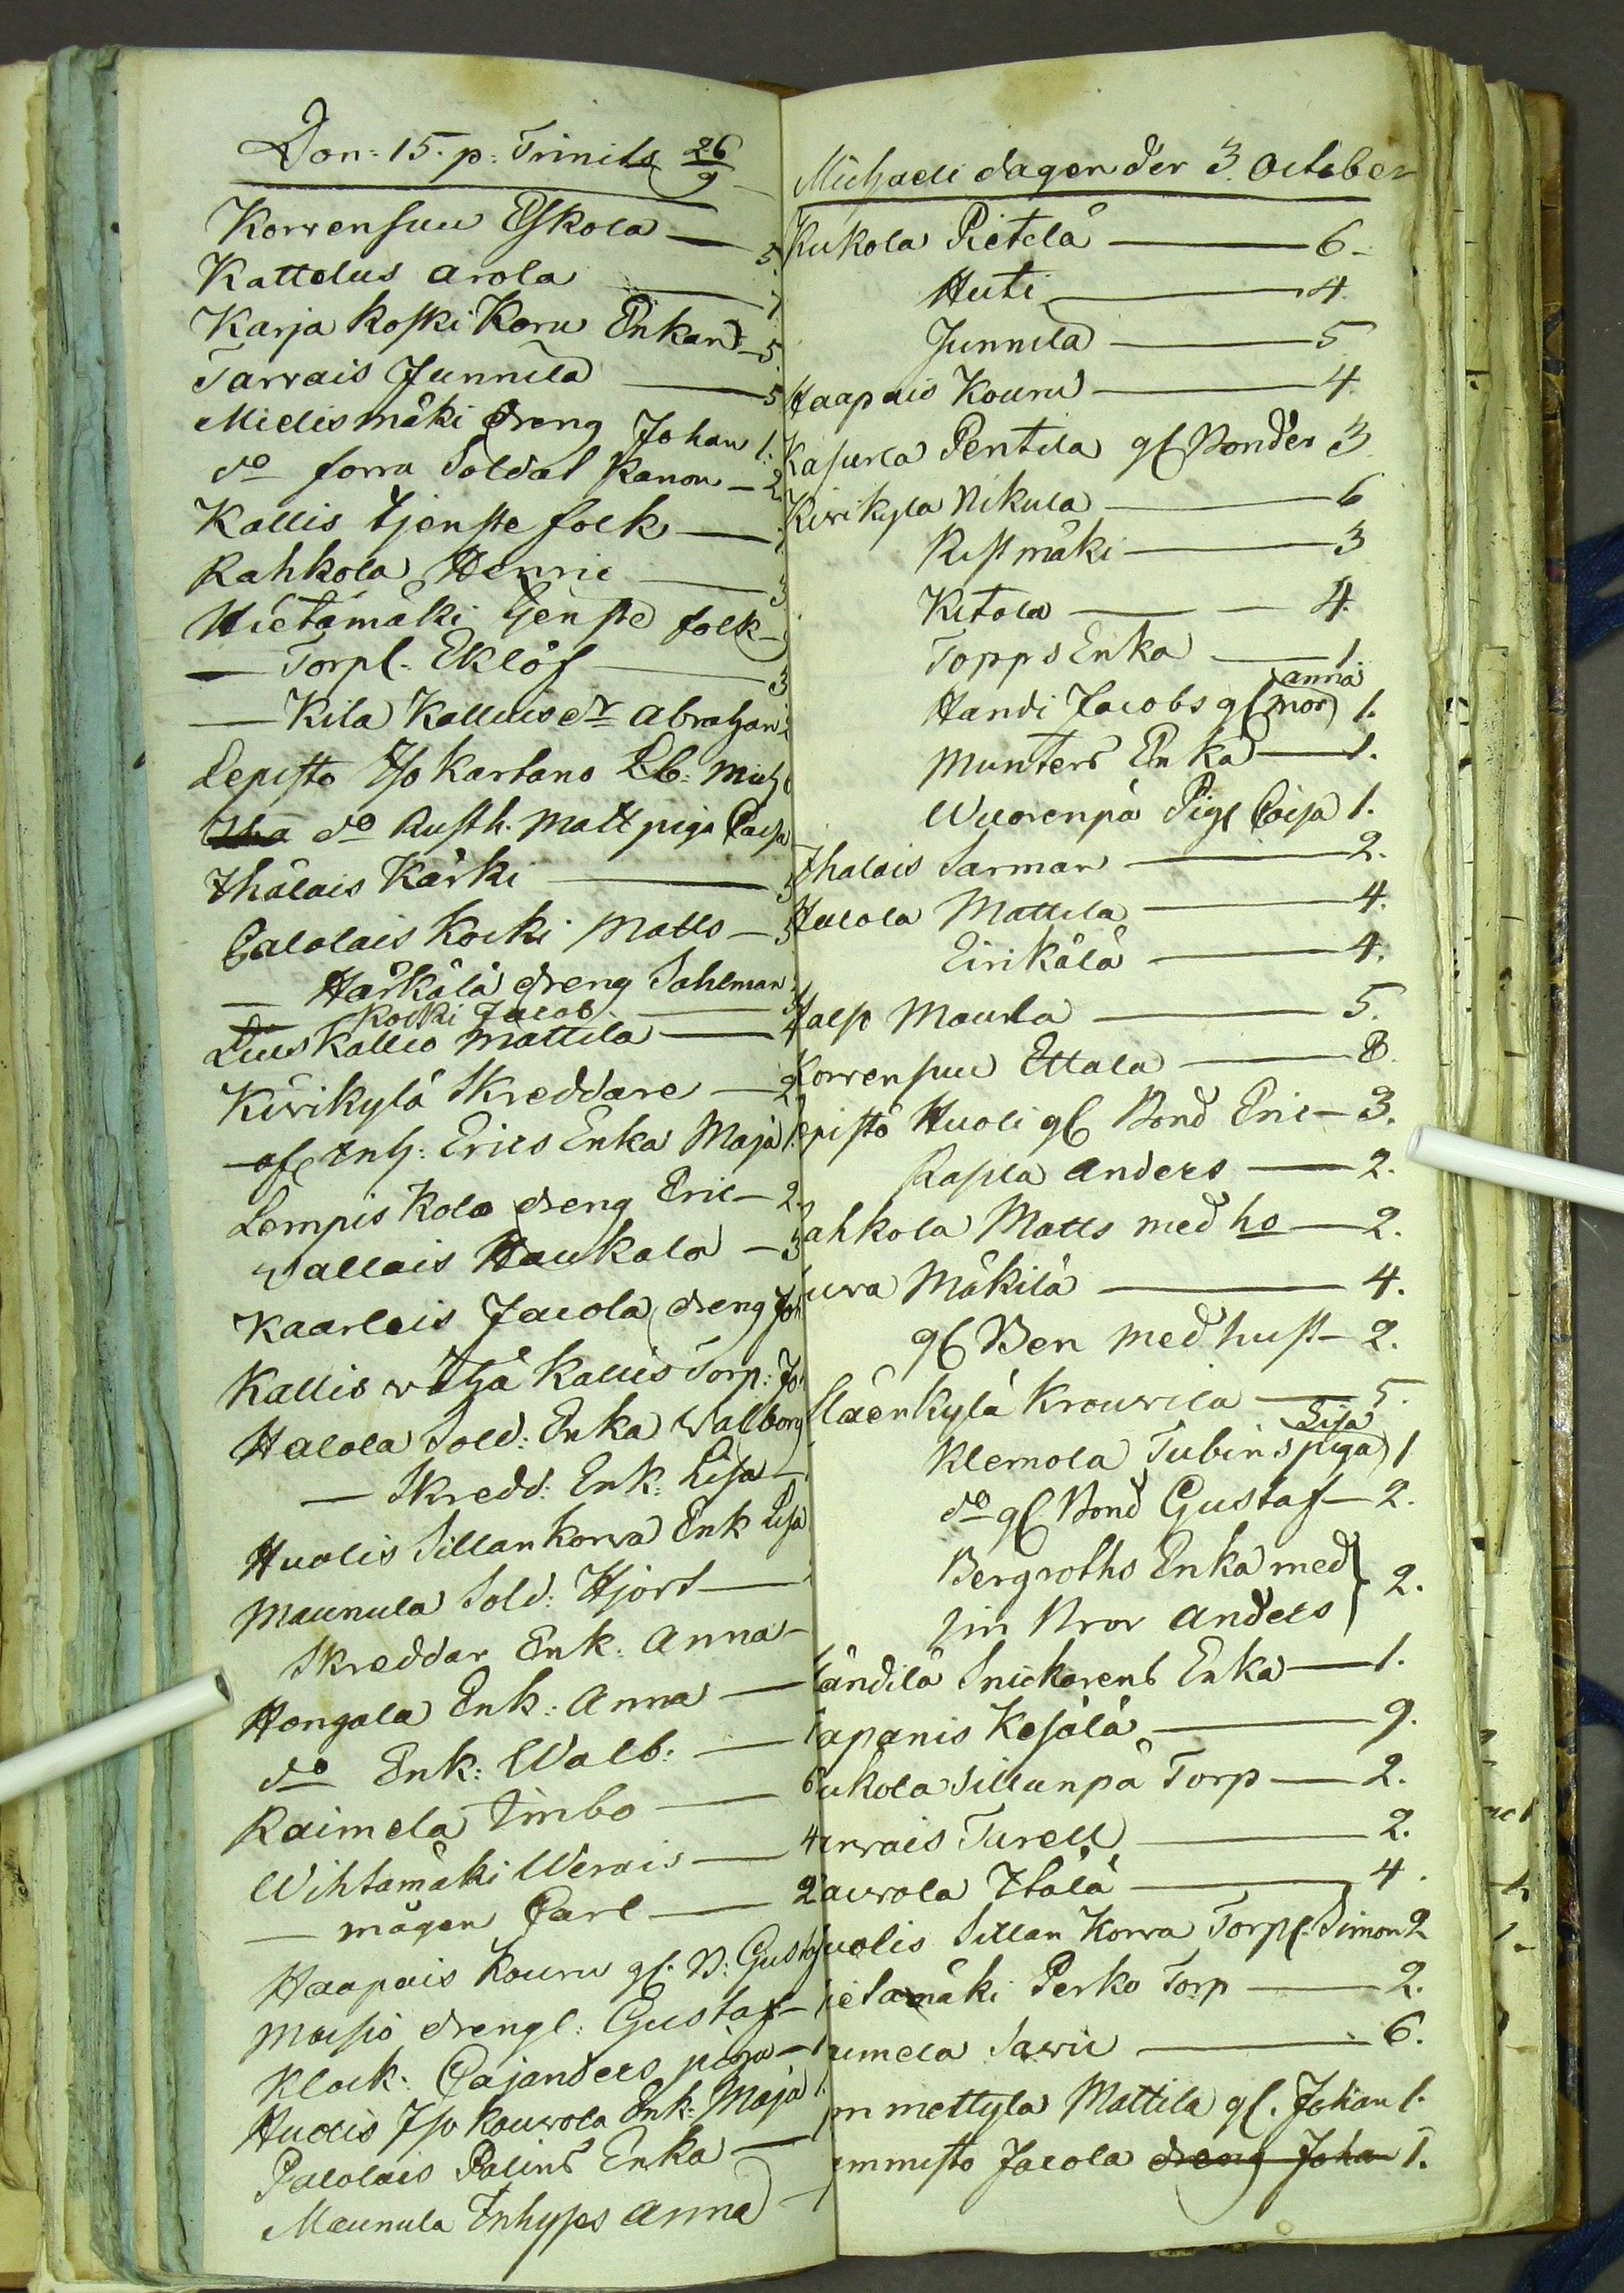 Don: 15. p: Trinits 26/9
Korvensuu Eskola — 5.
Kattelus Arola — 7
Karja koski Koru Enkan — 5
Tarvais Junnila — 5
Mielismäki dreng Johan 1.
do forra Soldat Kanon — 2
Kallis tjenste folk —
Rahkola Henric — 3
Hietämäki tjenste folk —
— Torpl. Eklöf — 3
— Kila Kallias dr Abraham
Lepistö Iso Kartano Lb: Mich
do Rusth. Matt piga Caisa
Ihalais Kärki —
Palolais Koiki Matts — 3
— Härkälä dreng Sahlman
— Koiki Jacob —
Lius Kallio Mattila — 4
Kivikylä Skreddare — 2
of Inh: Erics Enka Maja 1.
Lempis Kola dreng Eric — 2.
Vallais Haukala — 3
Kaarleis Jacola dreng Joh
Kallis vähä Kallis Torp: Jo
Halola Sold: Enka Walborg
— Skredd: Enk: Lisa —
Huolis Sillankorva Enk Lisa
Maunula Sold: Hjort —
Skreddar Enk: Anna —
Hongala Enk: Anna —
do Enk: Walb: —
Raimela Simbo — 6
Wihtamäki Werais — 4
— mågen Carl — 2
Haapais Kouru gl. B: Gustaf
Maisio drengl: Gustaf —
Klock: Cajanders piga — 1
Huolis Iso Kouvola Enk: Maja 1.
Palolais Palins Enka —
Maunula Inhyses Anna —
Michaeli dagen der 3. October
Kukola Pietilä — 6 -
Huti — 4.
Junnila — 5
Haapais Kouru — 4.
Kasurla Pentila gl Bonden 3
Kivikyla Nikula — 6
Ristmäki — 3
Kitola — 4.
Topps Enka — 1.
Anna
Handi Jacobs gl mor 1.
Munters Enka — 1.
Wuorenpä Pig Caisa 1.
Ihalais Sarman — 2.
Halola Mattila — 4.
Eirikälä — 4.
Maurla — 5.
Korvensuu Ettala — 8.
epistö Huoli gl Bond Eric — 3.
Rapila Anders — 2.
ahkola Matts med ho — 2.
uva Mäkilä — 4.
gl Ben med hust — 2.
läenkylä Krouvila — 5.
Lisa
Klemola Tubins piga 1
do gl Bond Gustaf — 2.
Bergroths Enka med
sin Bror Anders } 2.
ändilä Snickarens Enka — 1.
apanis Kejälä — 9.
ukola Sillanpä Torp — 2.
arvais Turell — 2.
auvola Italä — 4.
uolis Sillan Korva Torpl. Simon 2
ietamäki Perko Torp — 2.
umela Savic — 6.
mmettylä Mattila gl. Johan 1.
emmisto Jacola dreng Johan 1.